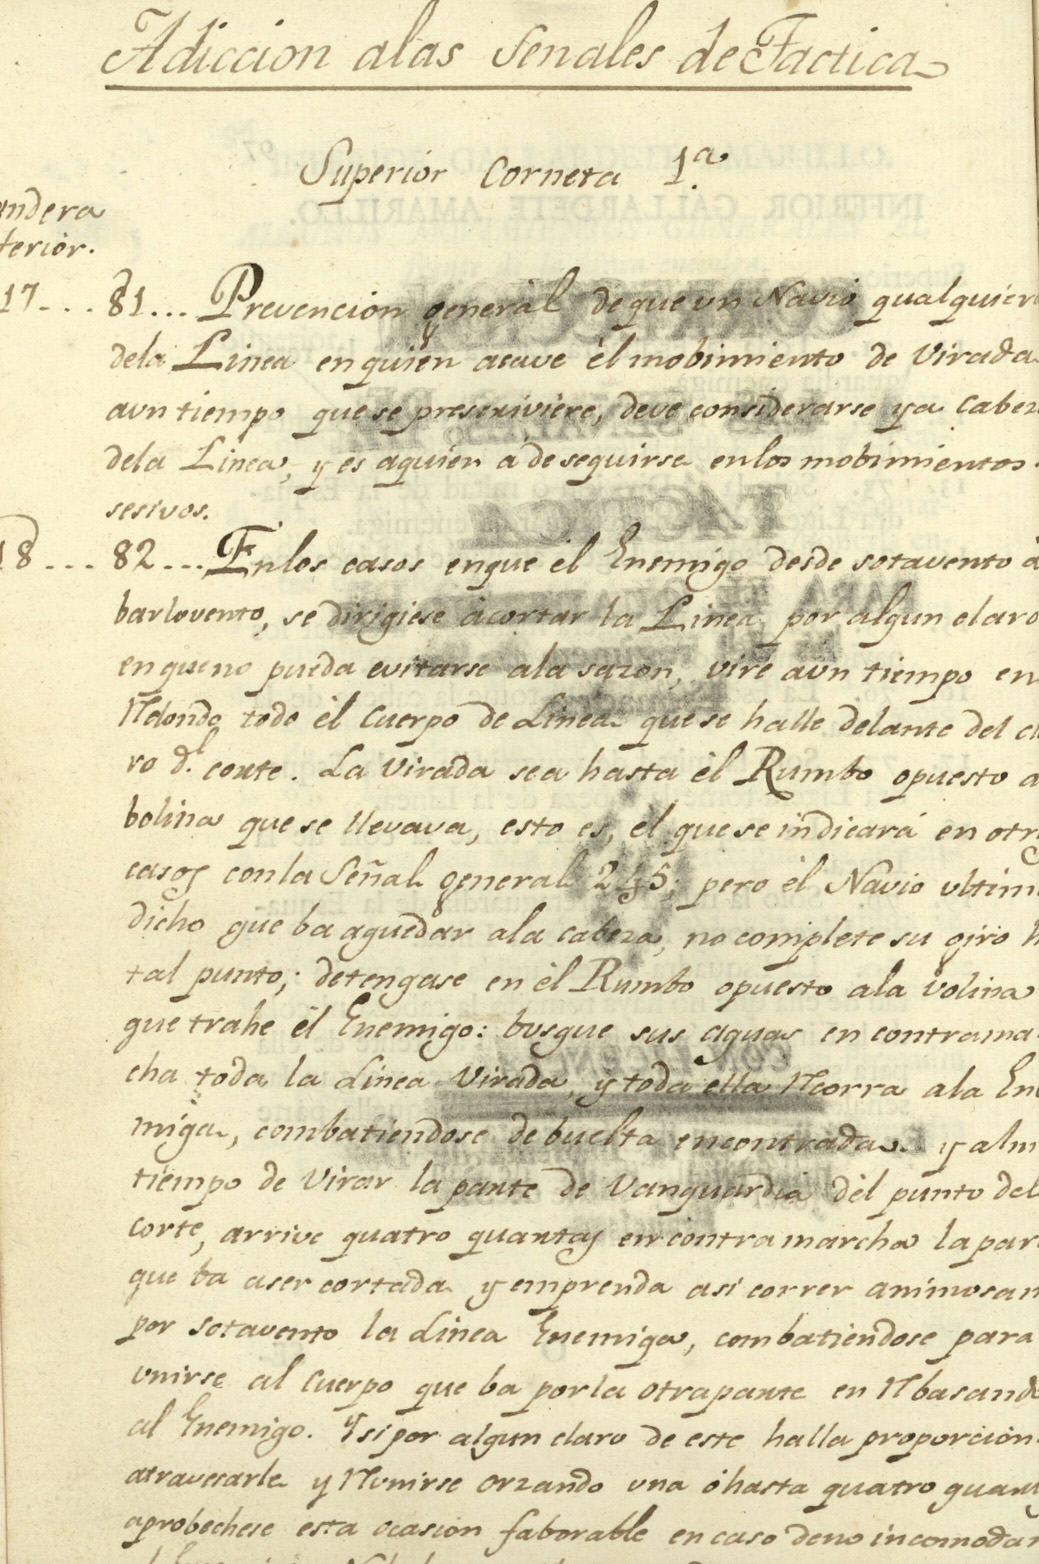 Adiccion alas Señales de Tactica
Superior Corneta 1.ª
andera
terior.
17... 81... Prevencion general de que vn Navio qualquier
dela Linea en quien acave él mobimiento de Virada
aun tiempo que se prescriviere, deve considerarse ya Cabez
dela Linea, y es aquien á de seguirse enlos mobimientos
sesivos.
18... 82... Enlos casos enque él Enemigo desde sotavento á
barlovento, se dirigiese á cortar la Linea por algun claro
en que no pueda evitarse ala sazon, vire aún tiempo en
Rdondo todo él Cuerpo de Linea que se halle delante del cl
ro d.l corte. La Virada sea hasta él Rumbo opuesto a
bolina que se llevava, esto es, él que se indicará en otr
casos conla Señal general 245; pero él Navio vltim
dicho que ba aquedar ala cabeza, no complete su giro h
tal punto; detengase en él Rumbo opuesto ala volina
que trahe él Enemigo: busque sus aguas en contrama
cha toda la Linea Virada, y toda ella Rcorra ala En
miga, combatiendose de buelta encontrada. y alm
tiempo de Virar la parte de Vanguardia dél punto del
corte, arrive quatro quartas en contramarcha la par
que ba aser cortada y emprenda asi correr animosam
por sotavento la Linea Enemiga, combatiendose para
vnirse al Cuerpo que ba por la otra parte en Rbasand
al Enemigo. Y si por algun claro de este halla proporcion
atravesarle y Runirse orzando una ó hasta quatro quart
aprobechese esta ocasion faborable en caso deno incomodar